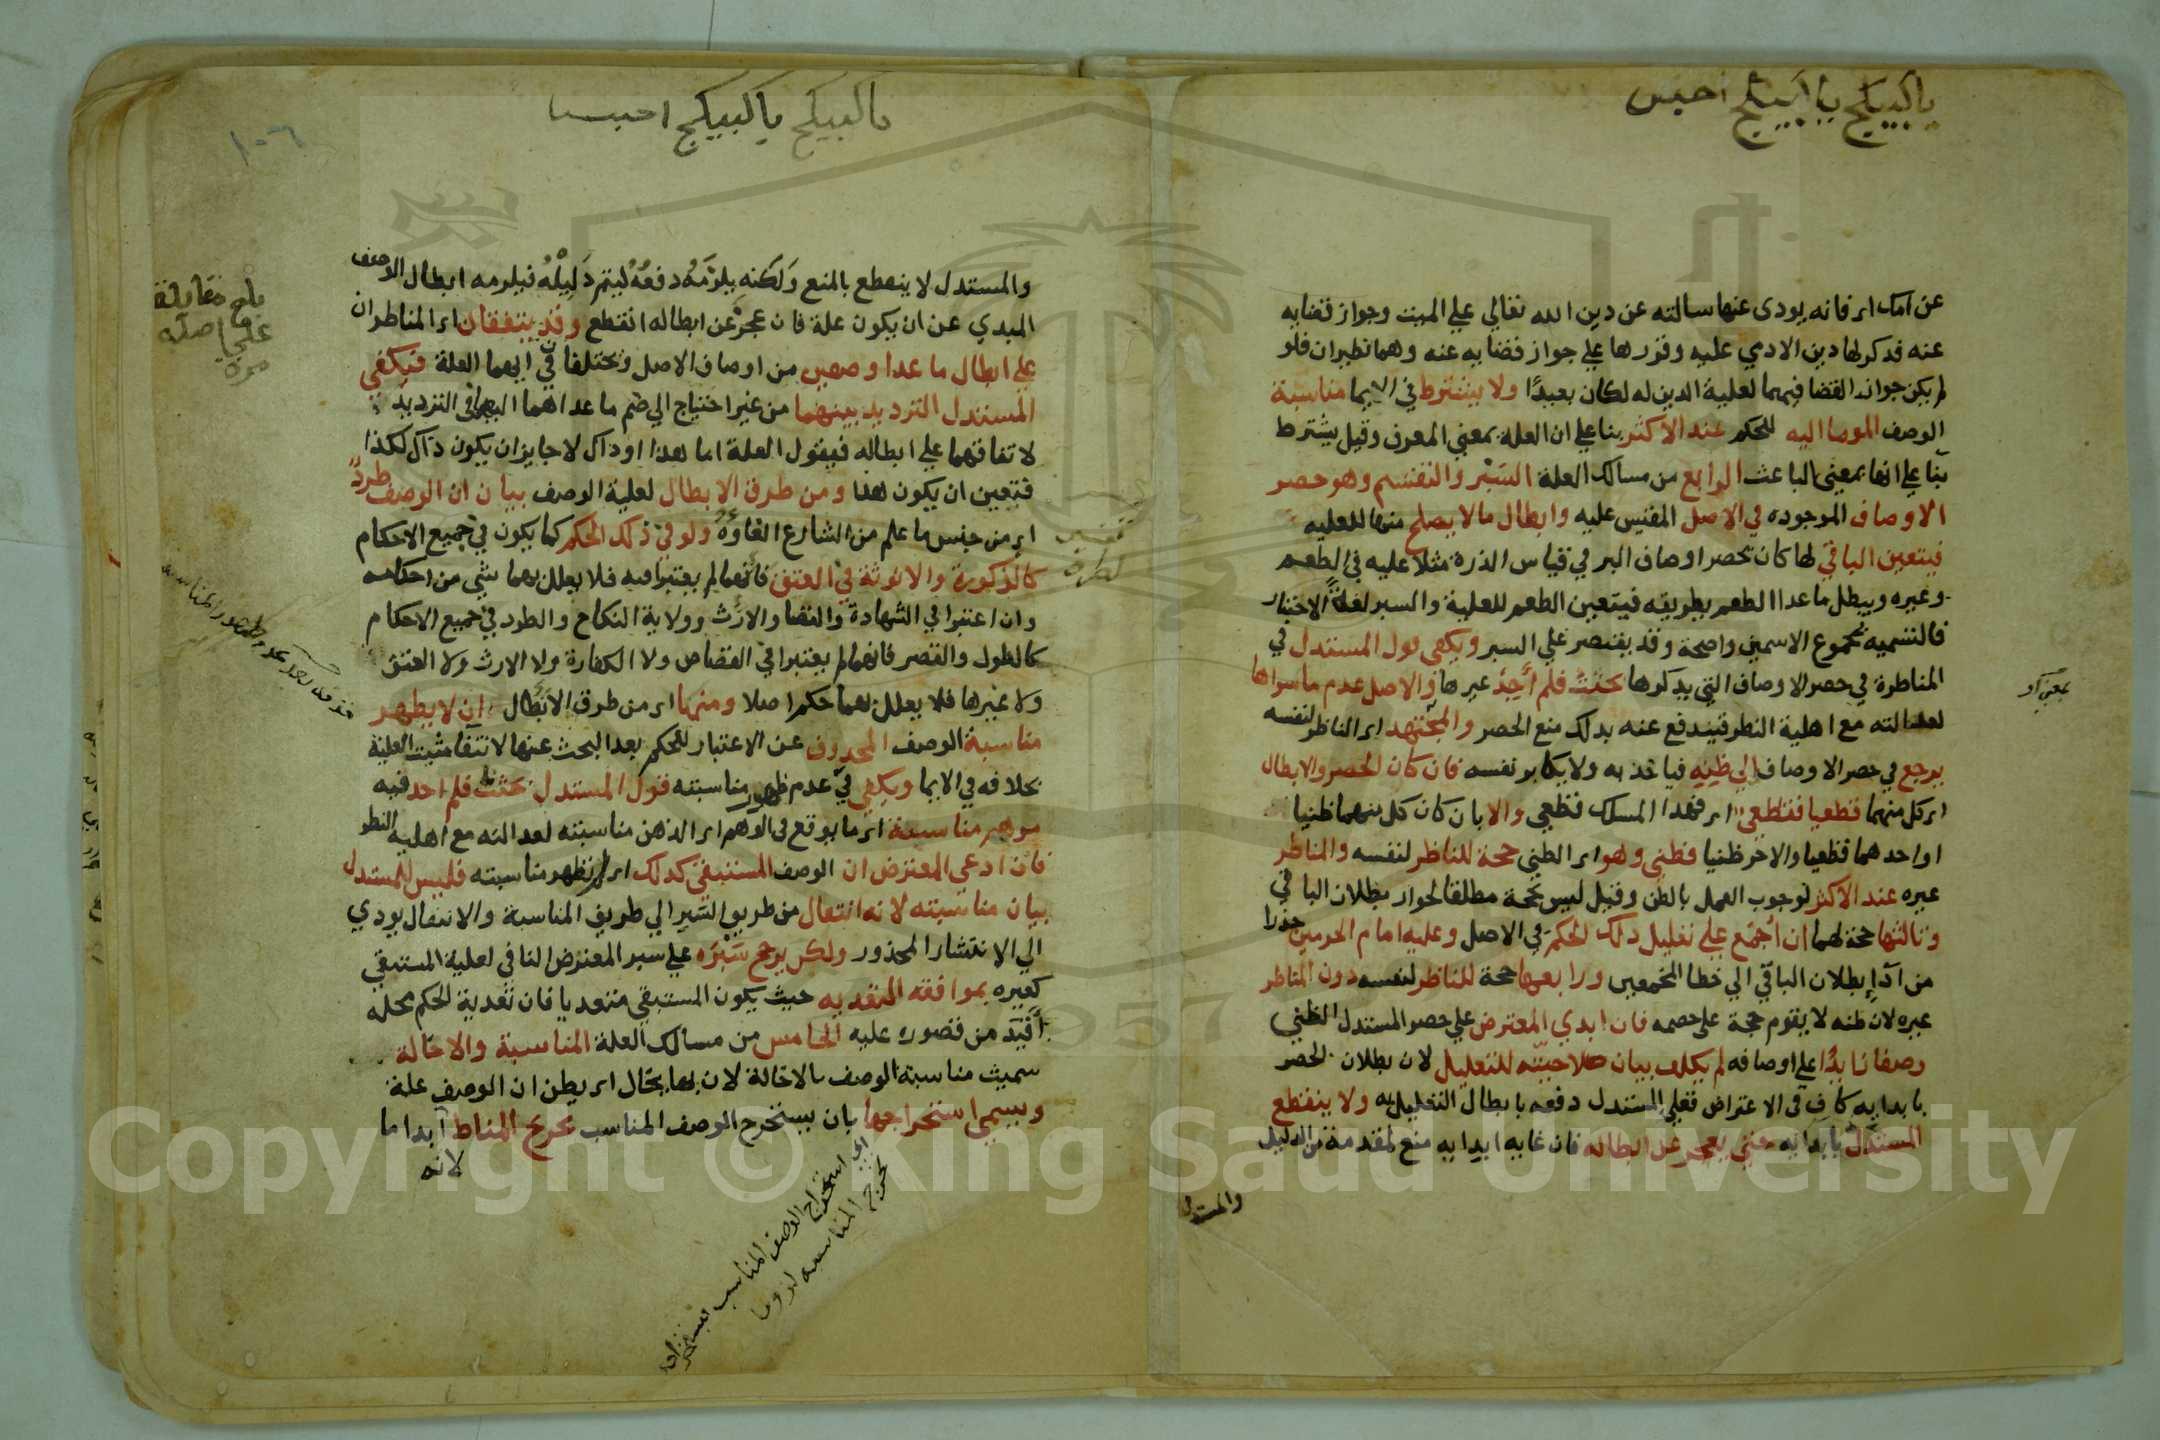 يا كبيكج يا كبيكج احبس
عن امك اي فانه يودى عنها سالته عن دين الله تعالي علي الميت وجواز قضايه
عنه فذكر لها دين الادمي عليه وقررها علي جواز قضايه عنه وهما نظيران فلو
لم يكن جواز القضا فيهما لعلية الدين له لكان بعيدًا ولا يشترط في الايما مناسبة
الوصف الموما اليه للحكم عند الاكثر بنا علي ان العلة بمعني المعرف وقيل يشترط
بنا علي انها بمعني الباعث الرابع من مسالك العلة السَبْر والتقسيم وهو حصر
الاوصاف الموجوده في الاصل المقيس عليه وابطال مالا يصلح منها للعليه
فيتعين الباقي لها كان تحصر اوصاف البر في قياس الذرة مثلا عليه في الطعم
وغيره ويبطل ماعدا الطعم بطريقه فيتعين الطعم للعلية والسبر لغةً الاختبار
فالتسميه بمجموع الاسمين واضحة وقد يقتصر علي السبر ويكفي قول المستدل في
المناظرة في حصر الاوصاف التي يذكرها بحثتُ فلم أجِدْ غيرها والاصل عدم ماسواها
لعدالته مع اهلية النظر فيندفع عنه بذلك منع الحصر والمجتهد اي الناظر لنفسه
يرجع في حصر الاوصاف الي ظنِه فياخذ به ولا يكابر نفسه فان كان الحصر والابطال
اي كل منهما قطعيا فقطعي اي فهذا المسلك قطعي والا بان كان كل منهما ظنيا
او احدهما قطعيا والاخر ظنيا فظني وهو اي الظني حجة للناظر لنفسه والمناظر
غيره عند الاكثر لوجوب العمل بالظن وقيل ليس بحجة مطلقا لجواز بطلان الباقي
وثالثها حجة لهما ان اُجْمِع علي تعليل ذلك الحكم في الاصل وعليه امام الحرمين حذرا
من اَدَاءِ بطلان الباقي الي خطا المجمعين ورابعها حجة للناظر لنفسه دون المناظر
غيره لان ظنه لا يقوم حجة علي خصمه فان ابدي المعترض علي حصر المستدل الظني
وصفا زايدًا علي اوصافه لم يكلف بيان صلاحيته للتعليل لان بطلان الحصر
بابدايه كافٍ في الاعتراض فعلي المستدل دفعه بابطال التعليل به ولا ينقطع
المستدل بابدايه حتي يعجز عن ابطاله فان غاية ابدايه منع لمقدمة من الدليل
والمستدل
يا كبيكج يا كبيكج احبس
١٠٦
والمستدل لا ينقطع بالمنع وَلَكنه يلزَمُه دفعُهُ ليتم دَلِيْلُهُ فيلزمه ابطال الوصف
المبدي عن ان يكون علة فان عجزَ عن ابطاله انقطع وقد يتفقان اي المتناظران
علي ابطال ماعدا وصفين من اوصاف الاصل ويختلفان في ايهما العلة فيكفي
المستدل الترديد بينهما من غير احتياج الي ضم ماعداهما اليهما في الترديد
لاتفاقهما علي ابطاله فيقول العلة اما هذا او ذاك لا جايز ان يكون ذاك لكذا
فتعين ان يكون هذا ومن طرق الابطال لعلية الوصف بيان ان الوصف طردٌ
اي من جنس ما علم من الشارع الغاؤهُ ولو في ذلك الحكم كما يكون في جميع الاحكام
كالذكورة والانوثة في العتق فانهما لم يعتبرا فيه فلا يعلل بهما شي من احكامه
وان اعتبرا في الشهادة والقضا والارث وولاية النكاح والطرد في جميع الاحكام
كالطول والقصر فانهما لم يعتبرا في القصاص ولا الكفارة ولا الارث ولا العتق
ولا غيرها فلا يعلل بهما حكم اصلا ومنها اي من طرق الابطال ان لا يظهر
مناسبة الوصف المحذوف عن الاعتبار للحكم بعد البحث عنها لانتفا مثبت العلية
بخلافه في الايما ويكفي في عدم ظهور مناسبته قول المستدل بحثت فلم اجد فيه
موهم مناسبة اي ما يوقع في الوهم اي الذهن مناسبته لعدالته مع اهلية النظر
فان ادعي المعترض ان الوصف المستبقي كذلك اي لم تظهر مناسبته فليس للمستدل
بيان مناسبته لانه انتقال من طريق السَبْر الي طريق المناسبة والانتقال يودي
الي الانتشار المحذور ولكن يرجح سَبْرَه علي سبر المعترض النافي لعلية المستبقي
كغيره بموافقة التعديه حيث يكون المستبقي متعديا فان تعدية الحكم محله
أفيَد من قصوره عليه الخامس من مسالك العلة المناسبة والاخالة
سميت مناسبة الوصف بالاخالة لان بها يخال اي يظن ان الوصف علة
ويسمي استخراجها بان يستخرج الوصف المناسب تخريج المناط ابدا ما
لانه
بلغ مقابلة
علي اصله
مره
تفسير
الطرد
اي استخراج الوصف المناسب
Copyright © King Saud University
1957